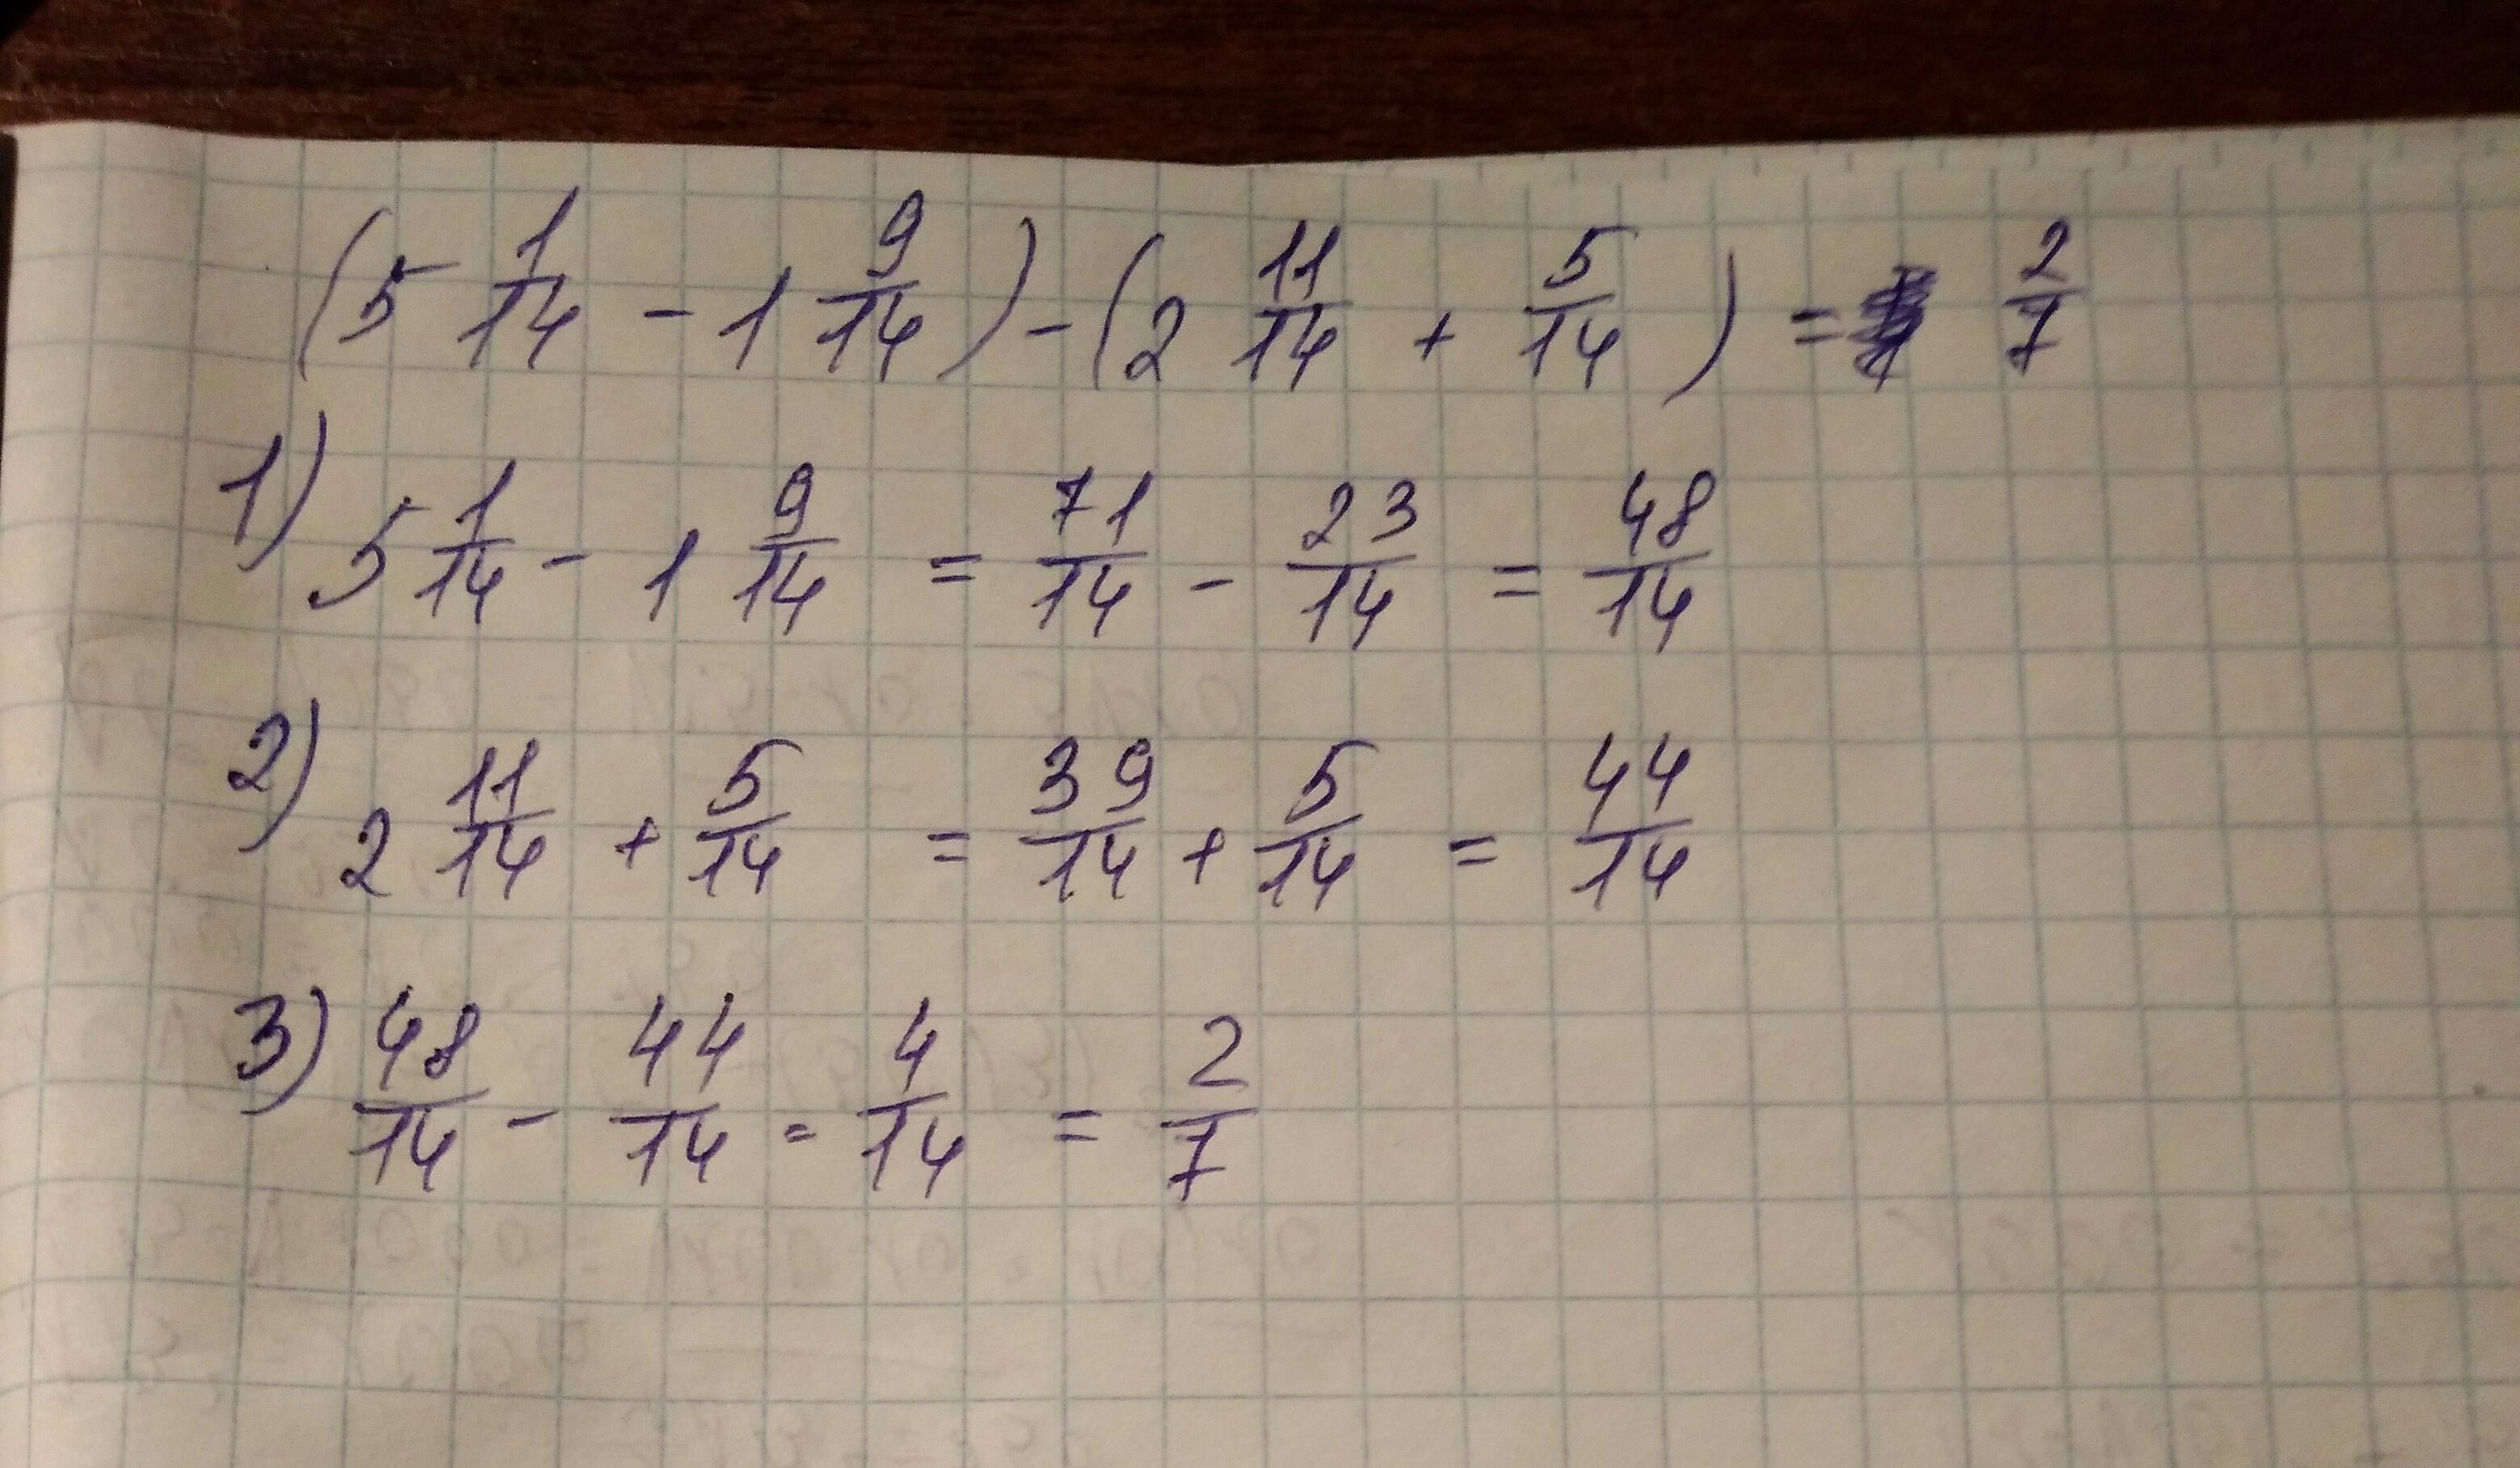 (5 1/14 - 1 9/14) - (2 11/14 + 5/14) = 2/7
1) 5 1/14 - 1 9/14 = 71/14 - 23/14 = 48/14
2) 2 11/14 + 5/14 = 39/14 + 5/14 = 44/14
3) 48/14 - 44/14 = 4/14 = 2/7